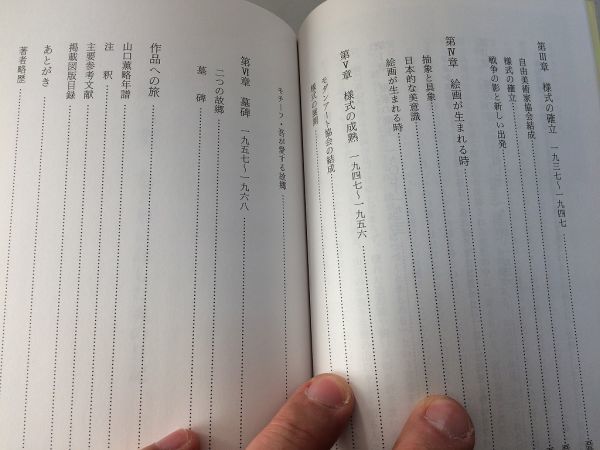 第Ⅲ章　様式の確立　一九三七〜一九四七
自由美術家協会結成
様式の確立
戦争の影と新しい出発
第Ⅳ章　絵画が生まれる時
抽象と具象
日本的な美意識
絵画が生まれる時
第Ⅴ章　様式の成熟　一九四七〜一九五六
モダンアート協会の結成
様式の展開
モチーフ・我が愛する故郷
第Ⅵ章　墓碑　一九五七〜一九六八
二つの故郷
墓碑
作品への旅
山口薫略年譜
注釈
主要参考文献
掲載図版目録
あとがき
著者略歴